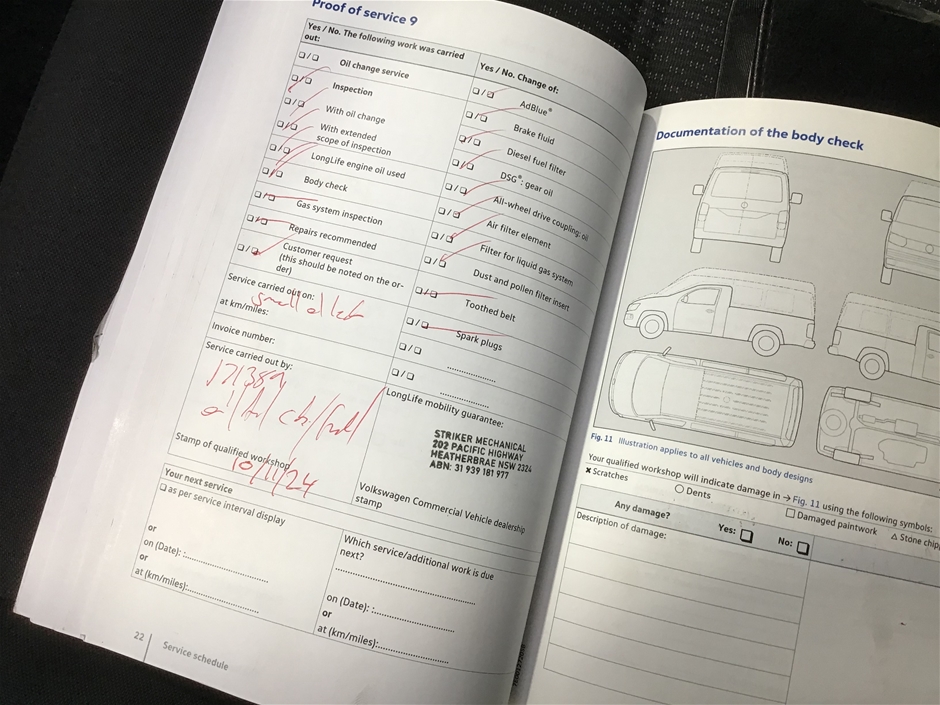 Proof of service 9
Yes / No. The following work was carried out:
Oil change service
Inspection
With oil change
With extended
scope of inspection
LongLife engine oil used
Body check
Gas system inspection
Repairs recommended
Customer request
(this should be noted on the or-
der)
Service carried out on:
at km/miles:
Invoice number:
Service carried out by:
10/11/24
Stamp of qualified workshop
Yes / No. Change of:
AdBlue®
Brake fluid
Diesel fuel filter
DSG®: gear oil
All-wheel drive coupling: oil
Air filter element
Filter for liquid gas system
Dust and pollen filter insert
Toothed belt
Spark plugs
LongLife mobility guarantee:
STRIKER MECHANICAL
202 PACIFIC HIGHWAY
HEATHERBRAE NSW 2324
ABN: 31 939 181 977
Volkswagen Commercial Vehicle dealership
stamp
Your next service
as per service interval display
or
on (Date): :
or
at (km/miles):
Which service/additional work is due
next?
on (Date): :
or
at (km/miles):
22
Service schedule
Documentation of the body check
Fig. 11 Illustration applies to all vehicles and body designs
Your qualified workshop will indicate damage in → Fig. 11 using the following symbols:
× Scratches
○ Dents
□ Damaged paintwork
△ Stone chip
Any damage?
Yes:
No:
Description of damage: